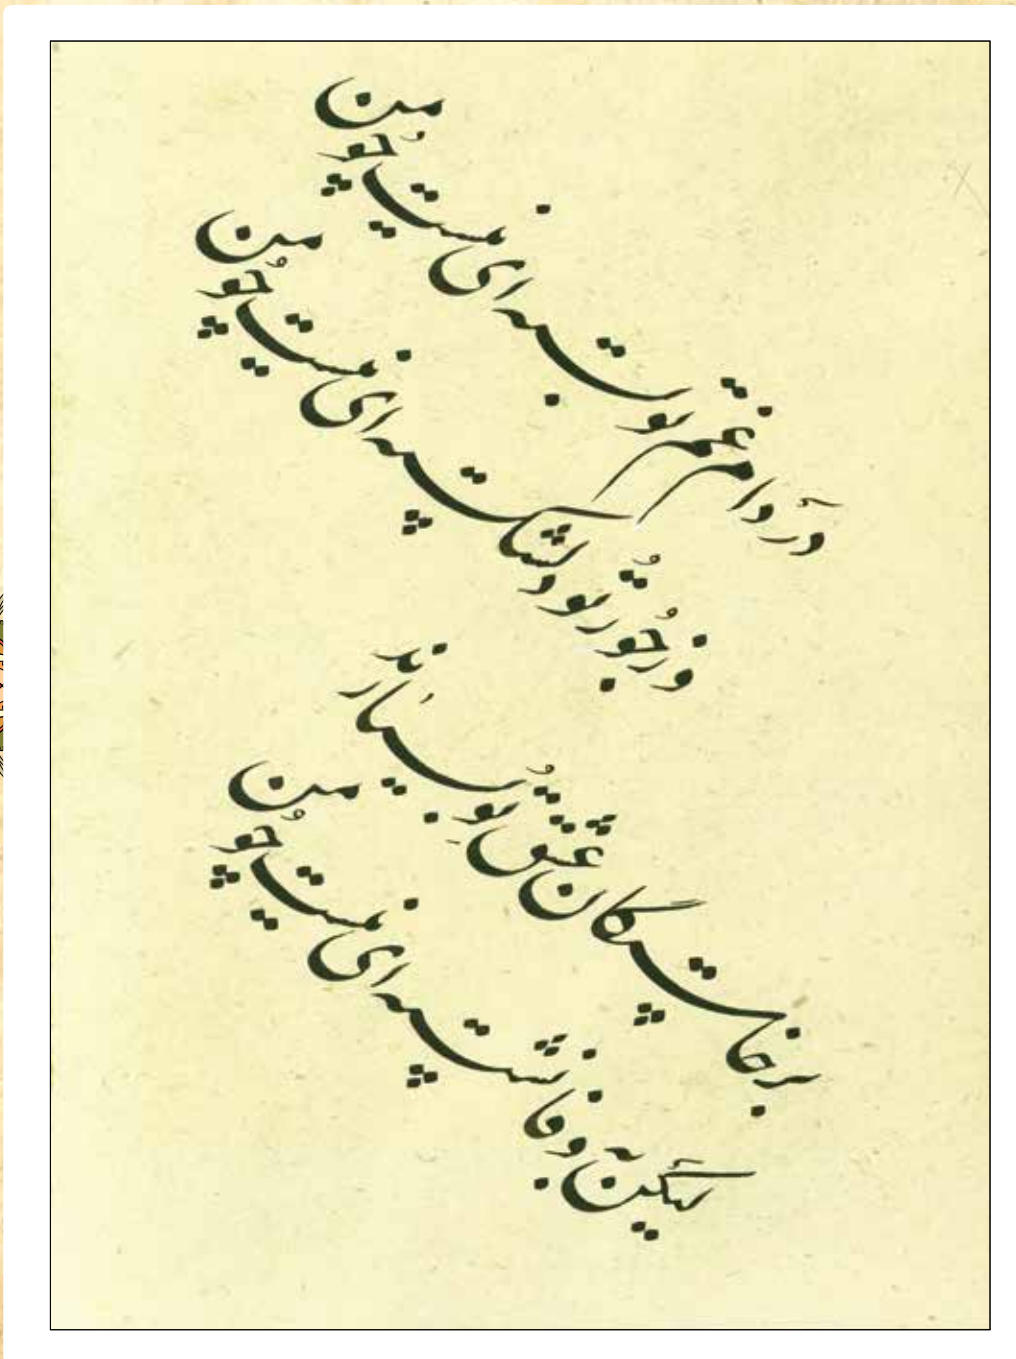 در دام غم تو بسته ای نیست چو من
وز جور تو دلشکسته ای نیست چو من
برخاستگان عشق تو بسیارند
لیکن به وفا نشسته ای نیست چو من